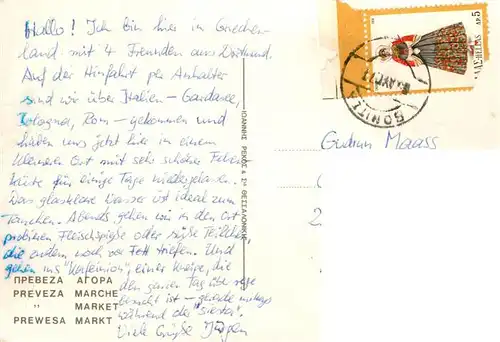 Hallo! Ich bin hier in Griechen-
land mit 4 Freunden aus Dortmund.
Auf der Hinfahrt per Anhalter
sind wir über Italien - Gardasee,
Bologna, Rom - gekommen und
haben uns jetzt hier in einem
kleineren Ort mit sehr schöner Felsen-
küste für einige Tage niedergelassen.
Das glasklare Wasser ist ideal zum
Tauchen. Abends gehen wir in den Ort
probieren Fleischspieße oder süße Teilchen,
die zudem noch vor Fett triefen. Und
gehen ins "Kafenion", einer Kneipe, die
den ganzen Tag über rege
besucht ist - gerade mittags
während der "siesta".
Viele Grüße Jürgen
ΠΡΕΒΕΖΑ ΑΓΟΡΑ
PREVEZA MARCHE
" MARKET
PREWESA MARKT
ΙΩΑΝΝΗΣ ΡΕΚΟΣ & Σία ΘΕΣΣΑΛΟΝΙΚΗ
ΕΛΛΑΣ-HELLAS ΔΡ 5
Gudrun Maass
2